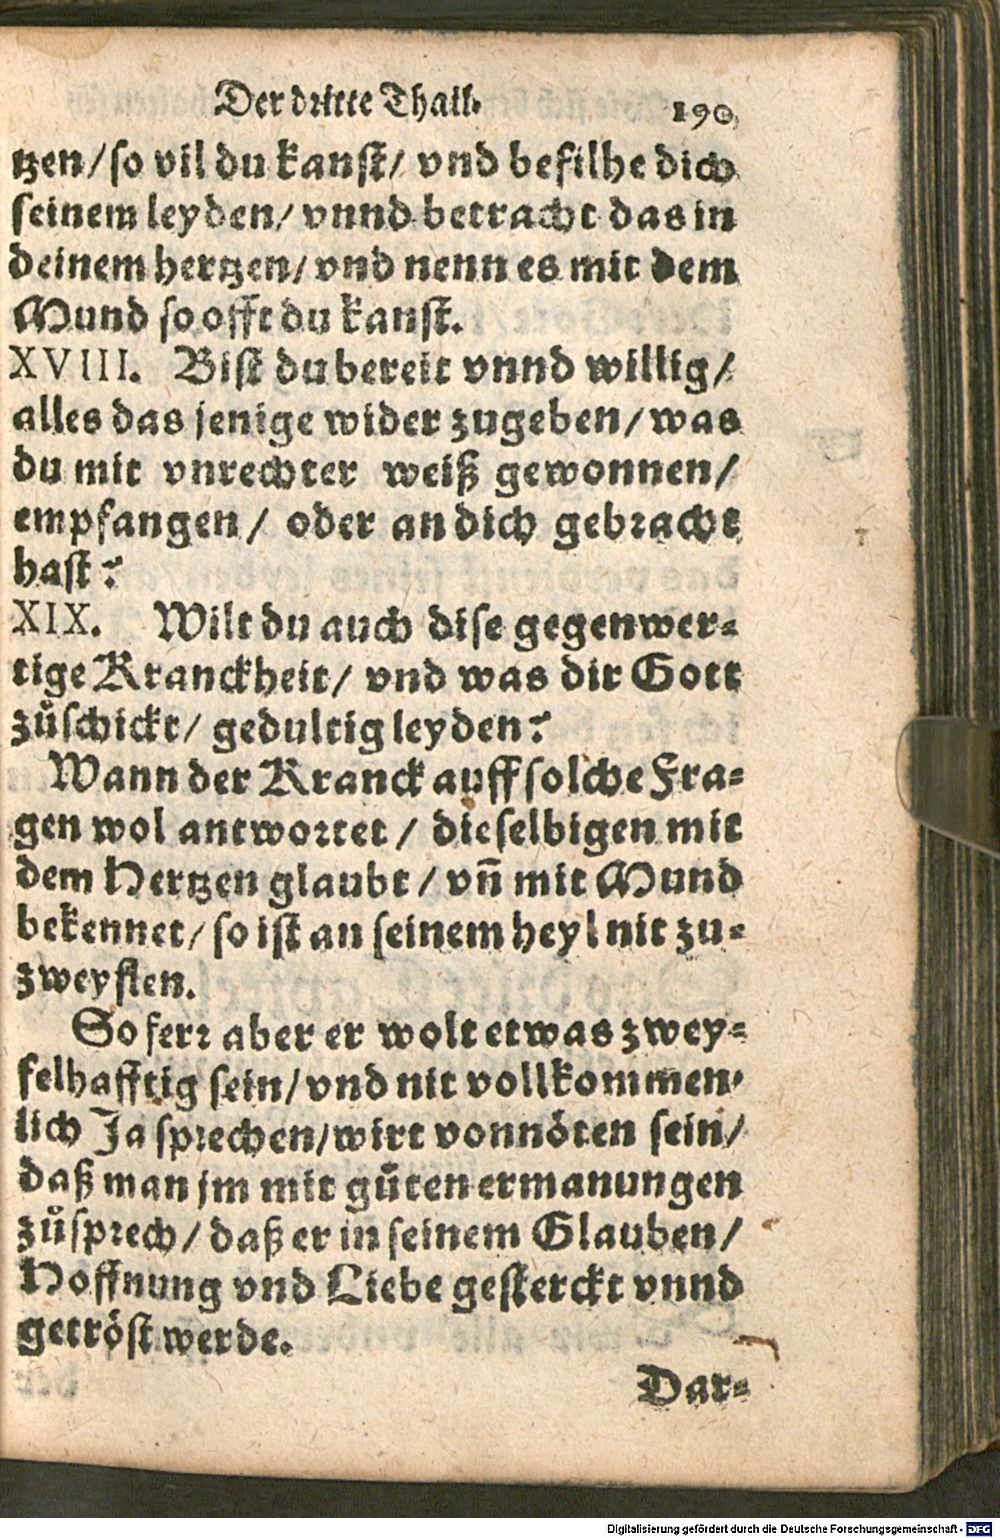 Der dritte Thail.
190.
tzen/so vil du kanst/ vnd befilhe dich
seinem leyden/ vnnd betracht das in
deinem hertzen/ vnd nenn es mit dem
Mund so offt du kanst.
XVIII. Bist du bereit vnnd willig/
alles das jenige wider zugeben/was
du mit vnrechter weiß gewonnen/
empfangen/ oder an dich gebracht
hast?
XIX. Wilt du auch dise gegenwer-
tige Kranckheit/ vnd was dir Gott
zůschickt/ gedultig leyden?
Wann der Kranck auff solche Fra-
gen wol antwortet/ dieselbigen mit
dem Hertzen glaubt/ vñ mit Mund
bekennet/ so ist an seinem heyl nit zu-
zweyflen.
So ferr aber er wolt etwas zwey-
felhafftig sein/ vnd nit vollkommen-
lich Ja sprechen/wirt vonnöten sein/
daß man jm mit gůten ermanungen
zůsprech/ daß er in seinem Glauben/
Hoffnung vnd Liebe gesterckt vnnd
getröst werde.
Dar-
Digitalisierung gefördert durch die Deutsche Forschungsgemeinschaft - DFG